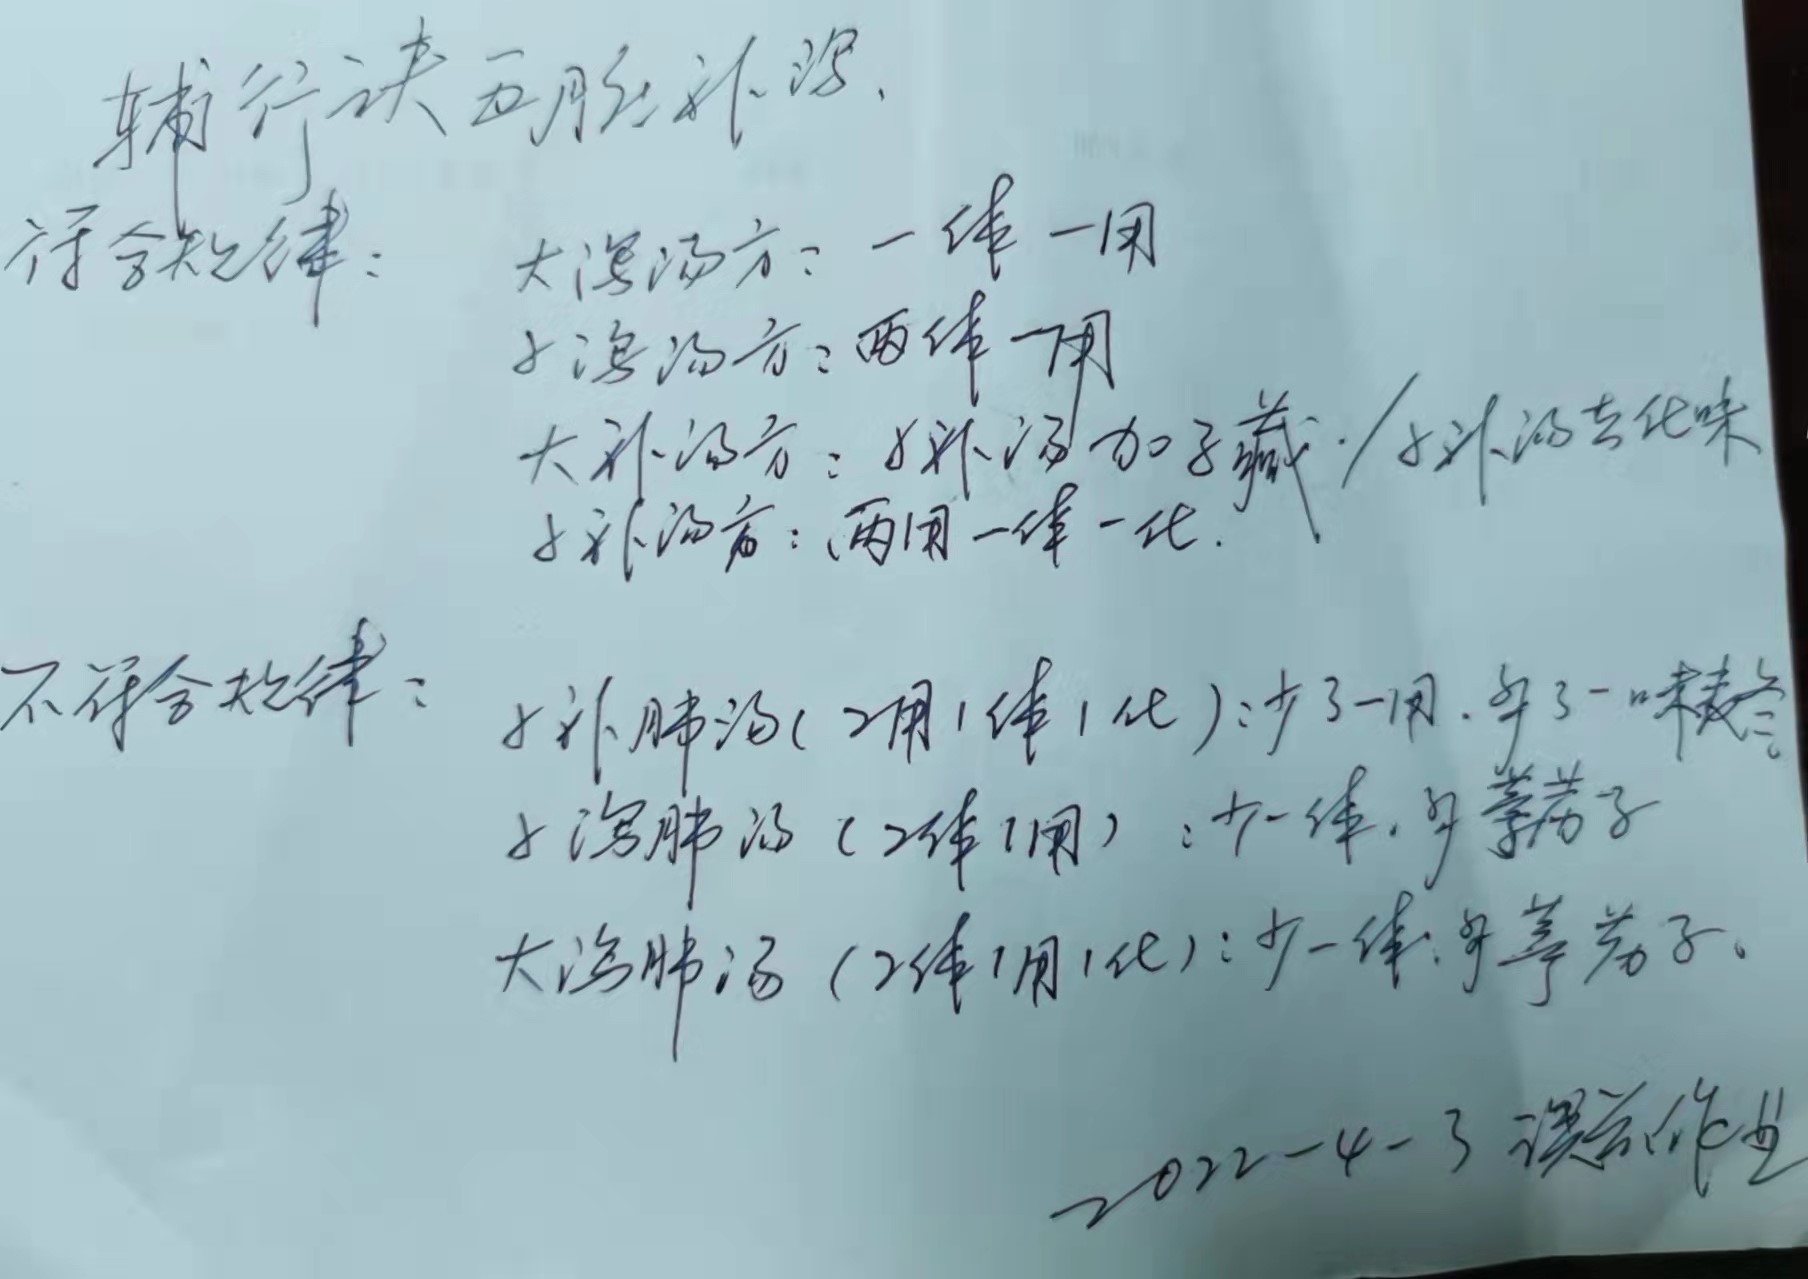 辅行诀五脏补泻、
符合规律: 大泻汤方: 一体一用
小泻汤方: 两体一用
大补汤方: 小补汤加子藏./小补汤去化味
小补汤方: 两用一体一化.
不符合规律: 小补肺汤(2用1体1化):少了一用.多了一味麦冬
小泻肺汤(2体1用):少一体.多葶苈子
大泻肺汤(2体1用1化):少一体.多葶苈子、
2022-4-3 课前作业